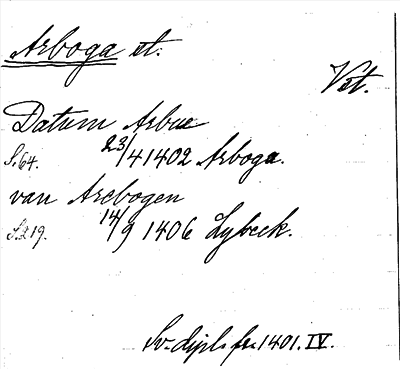 Arboga st.
Vst.
Datum Arbue
S. 64. 23/4 1402 Arboga.
van Arebogen
S. 219. 14/9 1406 Lybeck.
Sv. dipl. fr. 1401. IV.